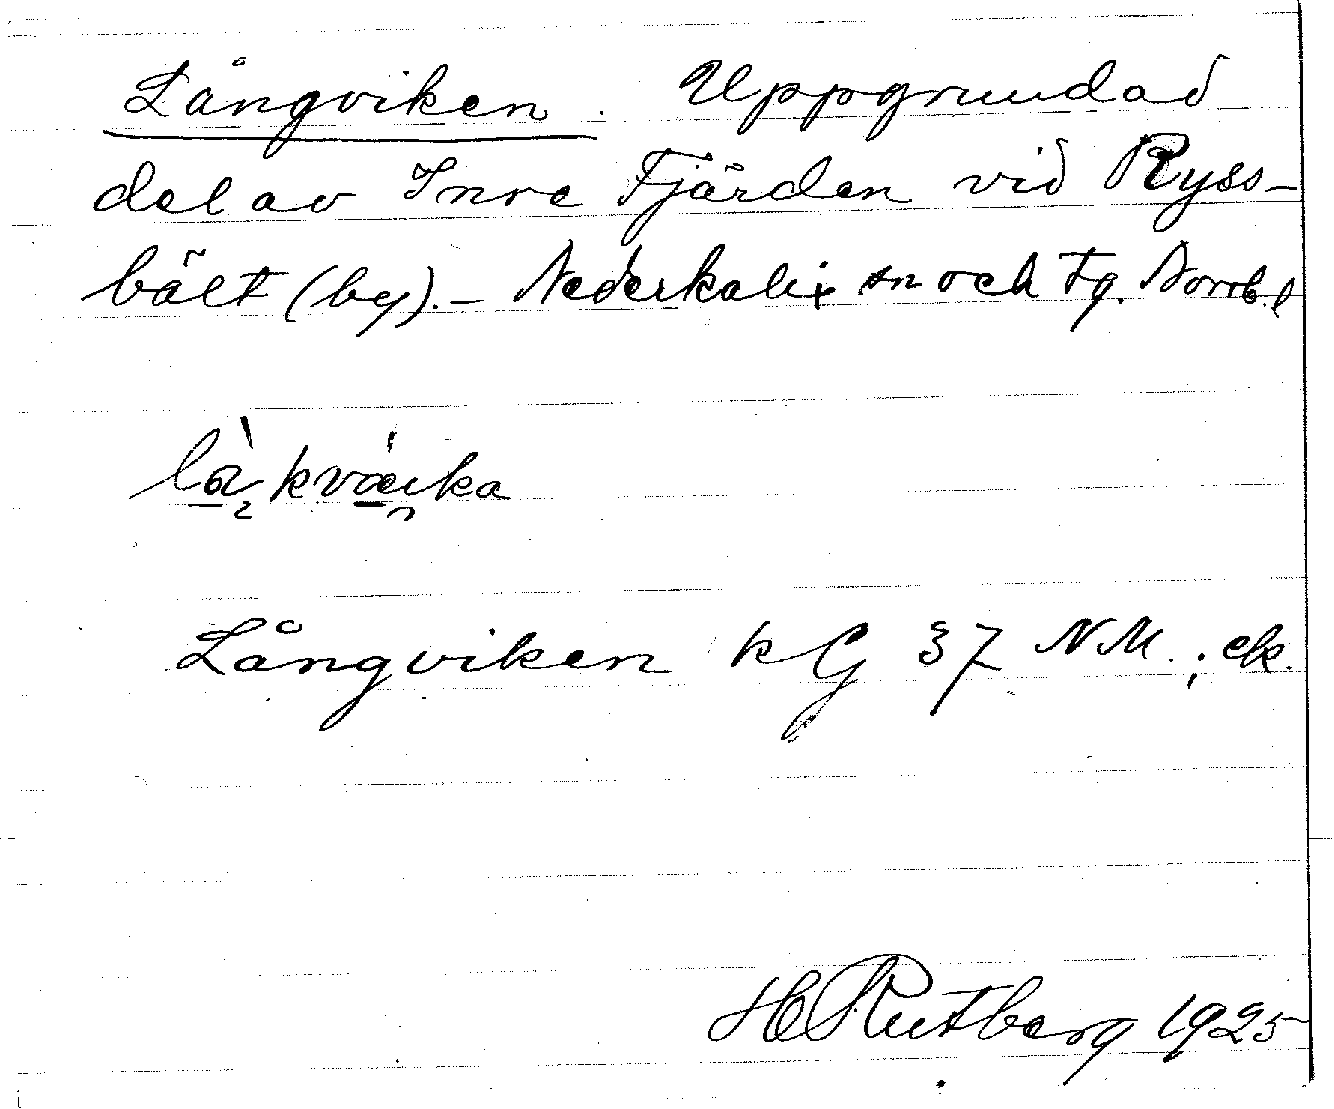 Långviken. Uppgrundad
del av Inre Fjärden vid Ryss-
bält (by). - Nederkalix sn och tg. Norrb. l
Långviken kG 37 NM.; ek.
H Rutberg 1925